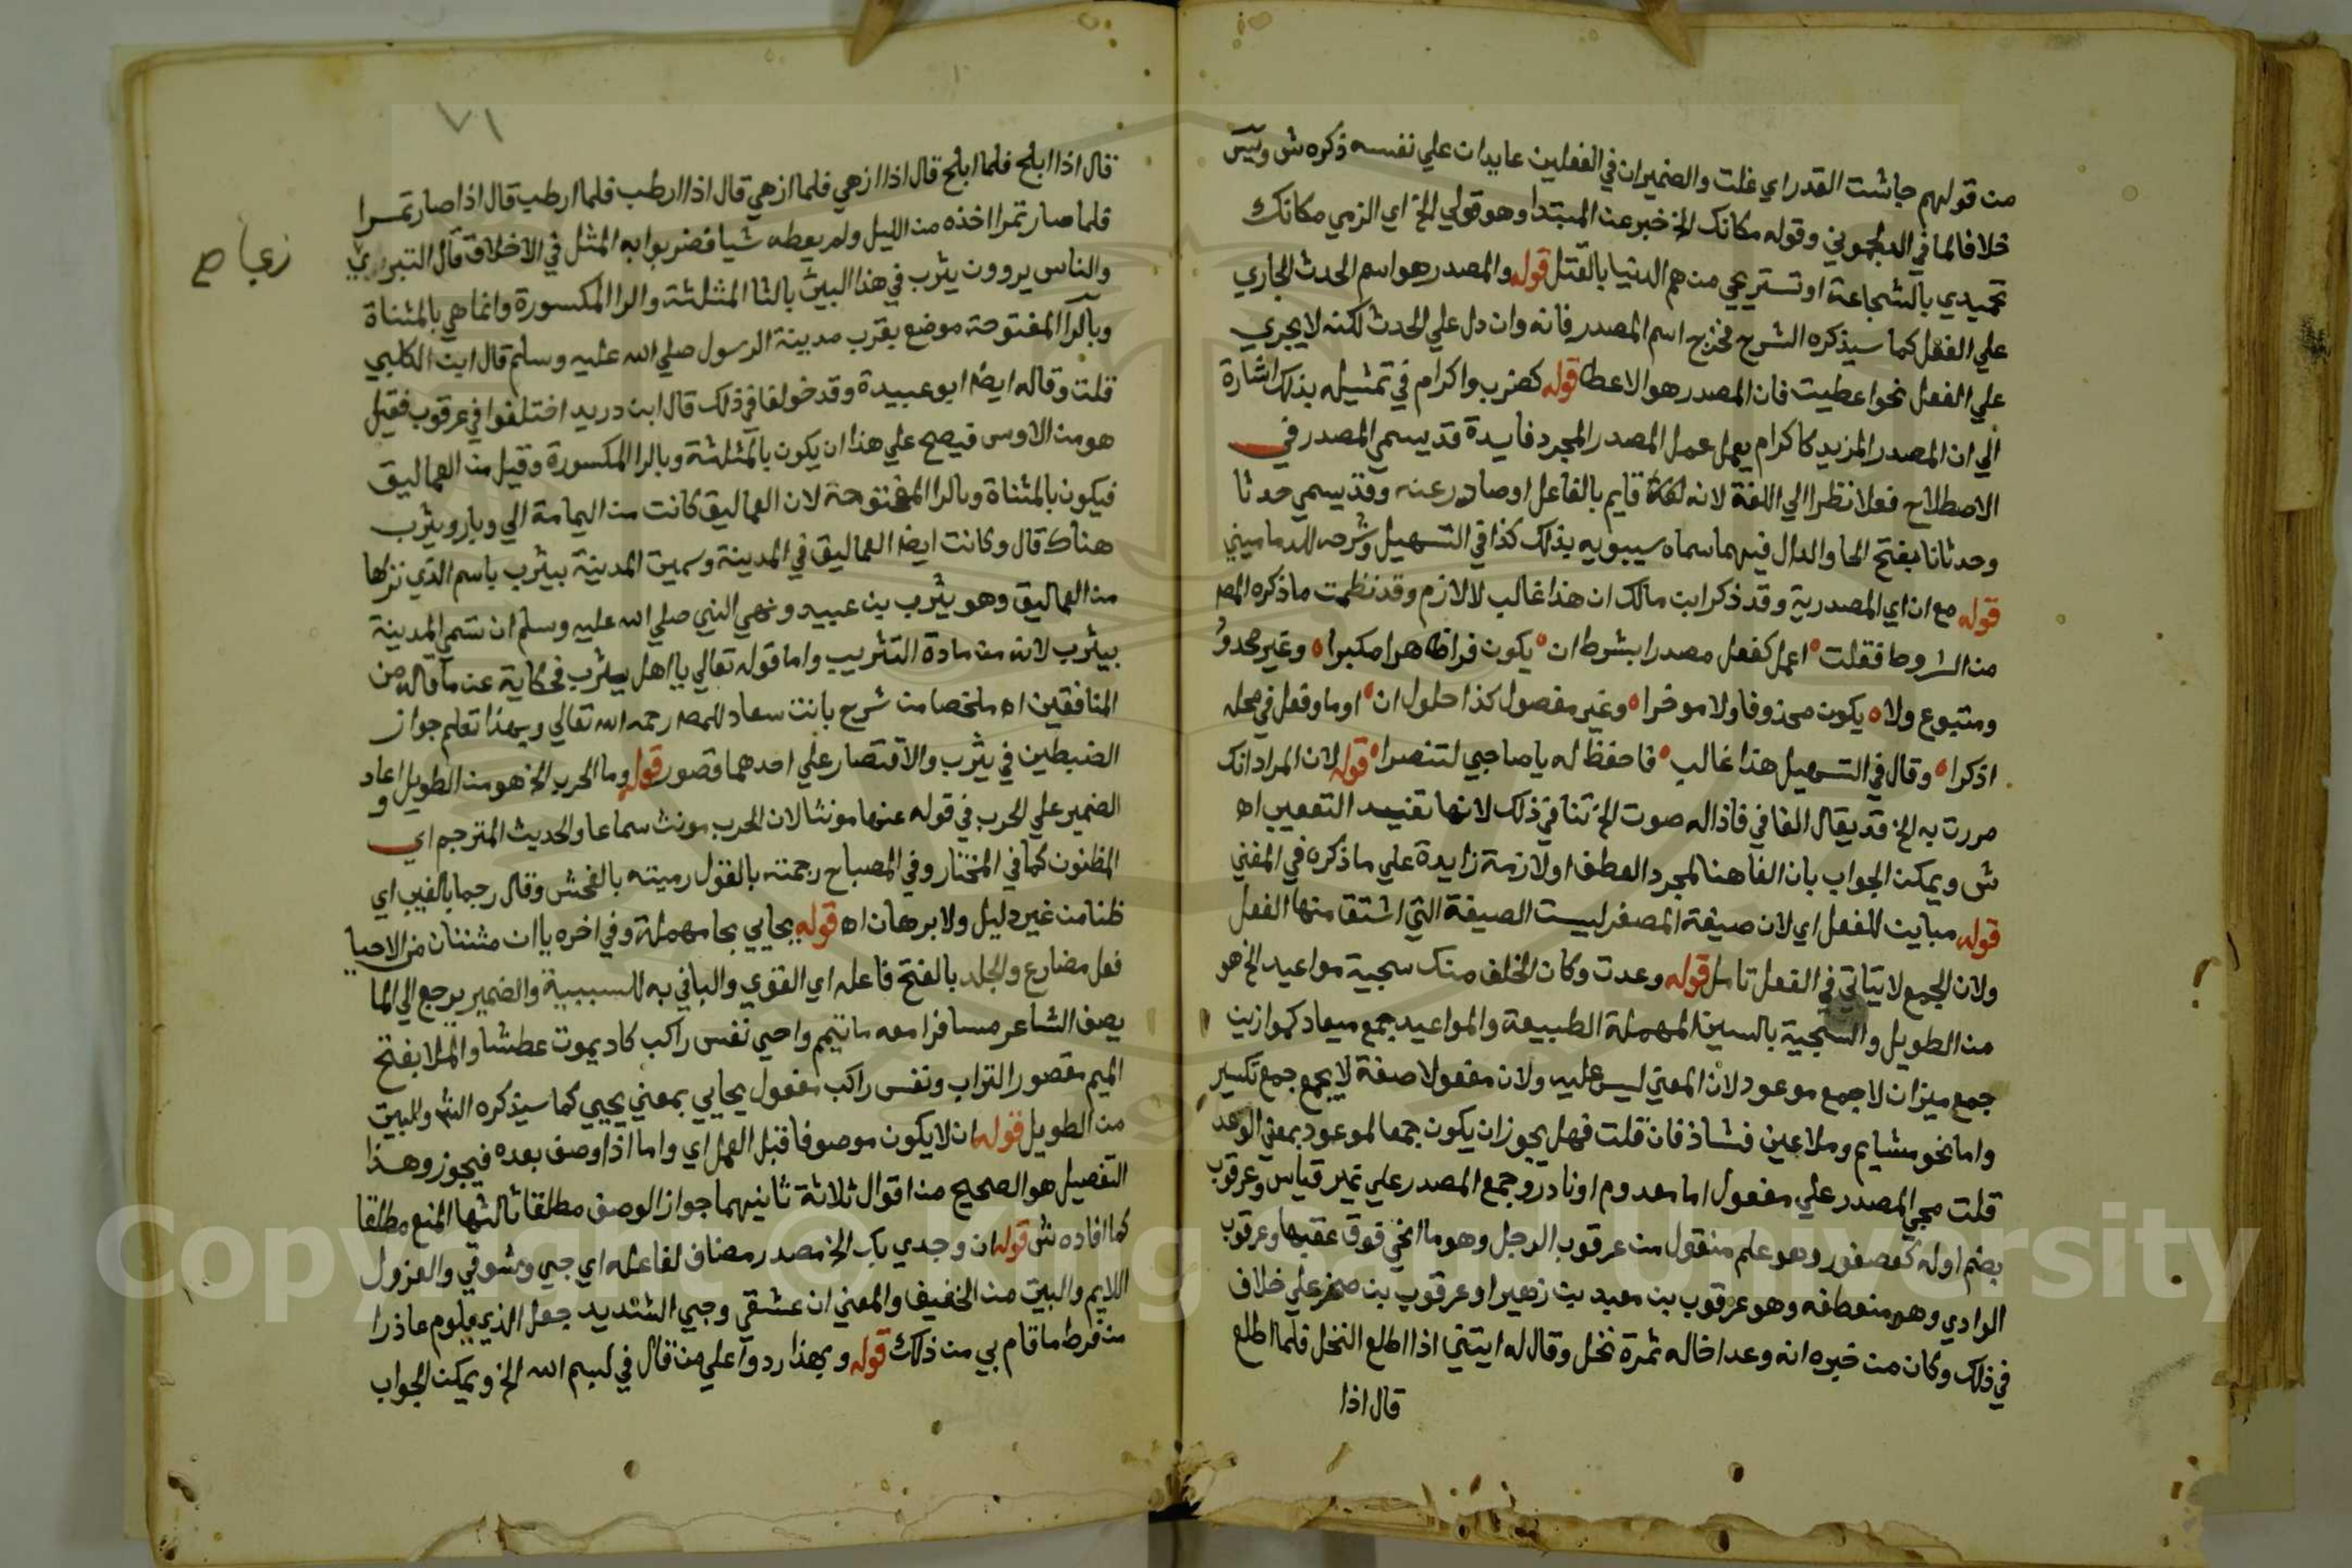 من قولهم جاشت القدر اي غلت والضميران في الفعلين عايدان علي نفسه ذكره ش وليس
خلافا لما في الدلجوني وقوله مكانك الخ خبر عن المبتدا وهو قولي الخ اي الزمي مكانك
تحمدي بالشجاعة او تستريحي من هم الدنيا بالقتل قوله والمصدر هو اسم الحدث الجاري
علي الفعل كما سيذكره الشرح فخرج اسم المصدر فانه وان دل علي الحدث لكنه لا يجري
علي الفعل نحو اعطيت فان المصدر هو الاعطا قوله كضرب واكرام في تمثيله بذلك اشارة
الي ان المصدر المزيد كاكرام يعمل عمل المصدر المجرد فايدة قد يسمي المصدر في
الاصطلاح فعلا نظرا الي اللغة لانه قايم بالفاعل او صادر عنه وقد يسمي حدثا
وحدثانا بفتح الحا والدال فيهما سماه سيبويه بذلك كذا في التسهيل وشرحه للدماميني
قوله مع ان اي المصدرية وقد ذكر ابن مالك ان هذا غالب لا لازم وقد نظمت ما ذكره المص
من الشروط فقلت اعمل كفعل مصدرا بشرط ان يكون فردا ظاهرا مكبرا وغير محدو
ومتبوع ولا يكون محذوفا ولا موخرا وغير مفصول كذا حلول ان او ما وفعل في محله
اذكرا وقال في التسهيل هذا غالب فاحفظ له يا صاحبي لتنصرا قوله لان المراد انك
مررت به الخ قد يقال الفا في فاذا له صوت الخ تنافي ذلك لانها تفيد التعقيب اه
ش ويمكن الجواب بان الفا هنا لمجرد العطف او لازمة زايدة علي ما ذكره في المغني
قوله مباين للفعل اي لان صيغة المصغر ليست الصيغة التي اشتق منها الفعل
ولان الجمع لا يتاتي في الفعل تامل قوله وعدت وكان الخلف منك سجية مواعيد الخ هو
من الطويل والسجية بالسين المهملة الطبيعة والمواعيد جمع ميعاد كموازين
جمع ميزان لا جمع موعود لان المعني ليس عليه ولان مفعولا صفة لا يجمع جمع تكسير
واما نحو مشايم وملاعين فشاذ فان قلت فهل يجوز ان يكون جمعا لموعود بمعني الوعد
قلت مجي المصدر علي مفعول اما معدوم او نادر وجمع المصدر علي غير قياس وعرقوب
بضم اوله كعصفور وهو علم منقول من عرقوب الرجل وهو ما انحني فوق عقبها وعرقوب
الوادي وهو منعطفه وهو عرقوب بن معبد بن زهير او عرقوب بن صخر علي خلاف
في ذلك وكان من خبره انه وعد اخا له ثمرة نخل وقال له ايتني اذا اطلع النخل فلما اطلع
قال اذا
٧١
قال اذا ابلح فلما ابلح قال اذا ازهي فلما ازهي قال اذا ارطب فلما ارطب قال اذا صار تمرا
فلما صار تمرا اخذه من الليل ولم يعطه شيا فضربوا به المثل في الاخلاف قال التبريزي
والناس يروون يثرب في هذا البيت بالثا المثلثة والرا المكسورة وانما هي بالمثناة
وبالرا المفتوحة موضع بقرب مدينة الرسول صلي الله عليه وسلم قال ابن الكلبي
قلت وقاله ايضا ابو عبيدة وقد خولفا في ذلك قال ابن دريد اختلفوا في عرقوب فقيل
هو من الاوس فيصح علي هذا ان يكون بالمثلثة وبالرا المكسورة وقيل من العماليق
فيكون بالمثناة وبالرا المفتوحة لان العماليق كانت من اليمامة الي وبار ويثرب
هناك قال وكانت ايضا العماليق في المدينة وسميت المدينة بيثرب باسم الذي نزلها
من العماليق وهو يثرب بن عبيد ونهي النبي صلي الله عليه وسلم ان تسمي المدينة
بيثرب لانه من مادة التثريب واما قوله تعالي يا اهل يثرب فحكاية عن ما قاله من
المنافقين اه ملخصا من شرح بانت سعاد للمص رحمه الله تعالي وبهذا تعلم جواز
الضبطين في يثرب والاقتصار علي احدهما قصور قوله وما الحرب الخ هو من الطويل اعاد
الضمير علي الحرب في قوله عنها مونثا لان الحرب مونث سماعا والحديث المترجم اي
المظنون كما في المختار وفي المصباح رجمته بالقول رميته بالفحش وقال رجما بالغيب اي
ظنا من غير دليل ولا برهان اه قوله يحايي بحا مهملة وفي اخره ياان مثنتان من الاحيا
فعل مضارع والجلد بالفتح فاعله اي القوي والبا في به للسببية والضمير يرجع الي الما
يصف الشاعر مسافرا معه ما تيمم واحيي نفس راكب كاد يموت عطشا والملا بفتح
الميم مقصور التراب ونفس راكب مفعول يحايي بمعني يحيي كما سيذكره الش والبيت
من الطويل قوله ان لا يكون موصوفا قبل العمل اي واما اذا وصف بعده فيجوز وهذا
التفصيل هو الصحيح من اقوال ثلاثة ثانيهما جواز الوصف مطلقا ثالثها المنع مطلقا
كما افاده ش قوله ان وجدي بك الخ مصدر مضاف لفاعله اي حبي وشوقي والعزول
اللايم والبيت من الخفيف والمعني ان عشقي وحبي الشديد جعل الذي يلوم عاذرا
من فرط ما قام بي من ذلك قوله وبهذا ردوا علي من قال في لبسم الله الخ ويمكن الجواب
زي صح
Copyright © King Saud University